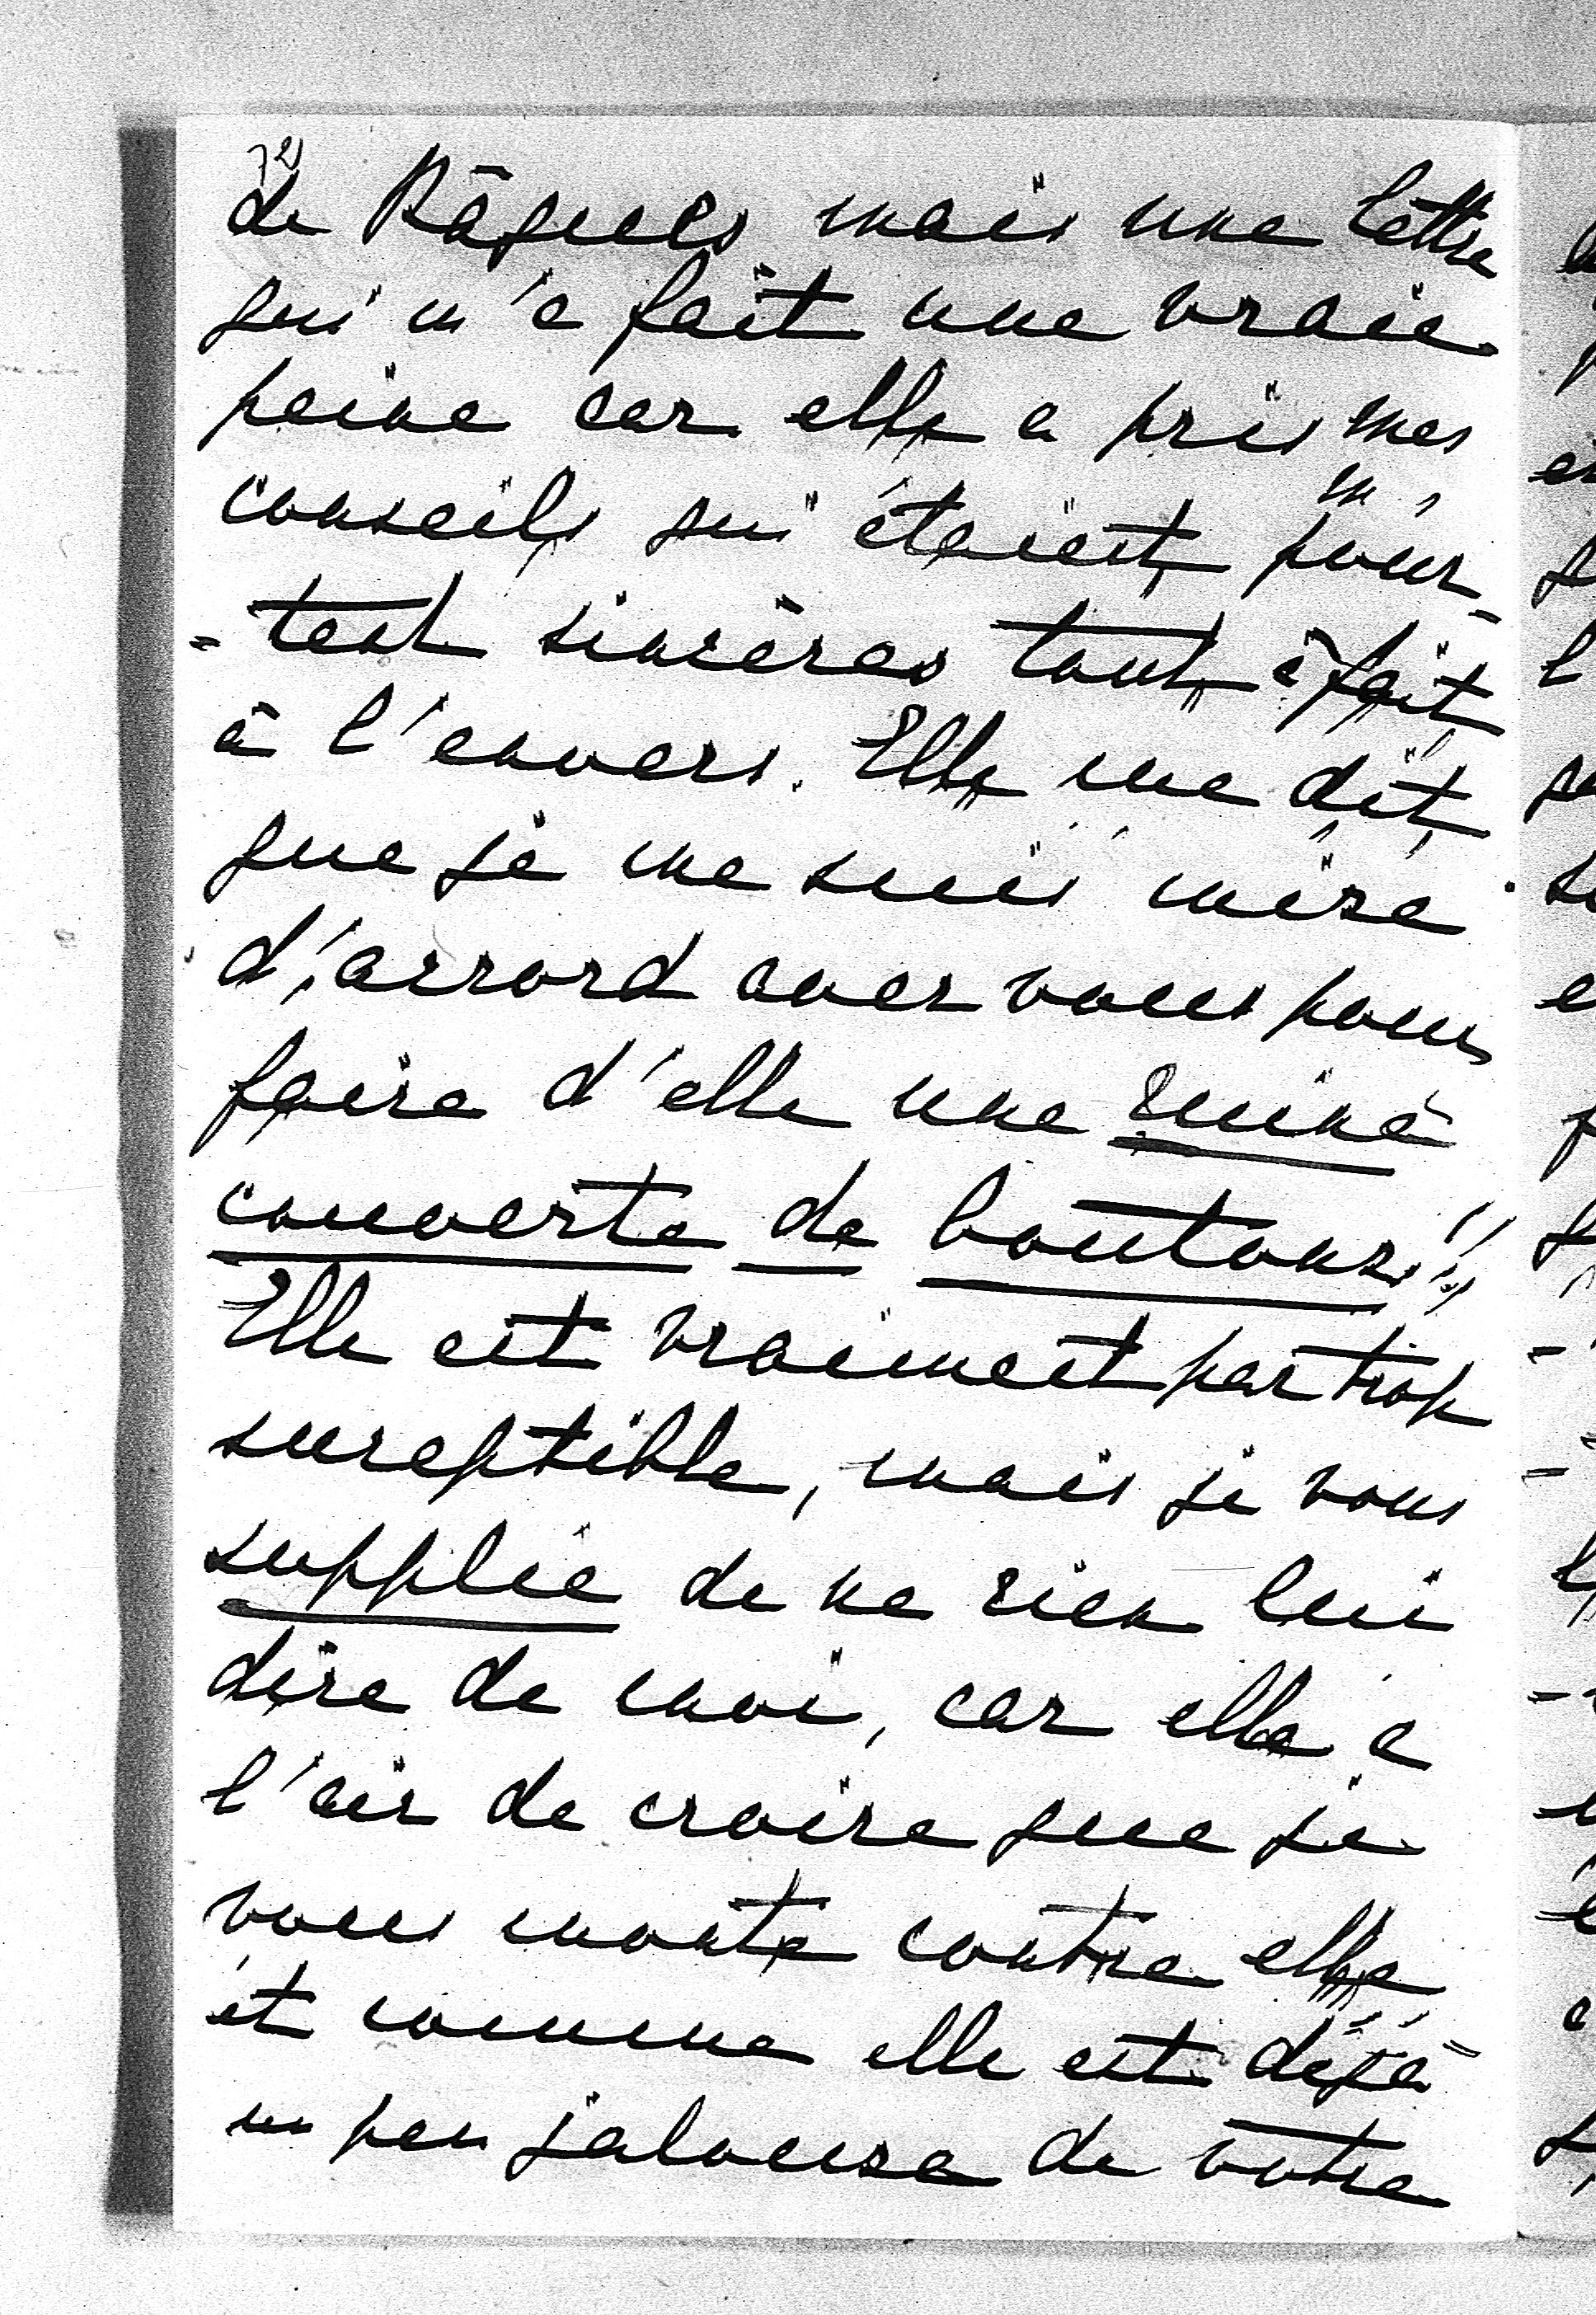 72)
de Pâques mais une lettre
qui m'a fait une vraie
peine car elle a pris mes
conseils qui étaient pour-
-tant sincères tout à fait
à l'envers. Elle me dit
que je me suis mise
d'accord avec vous pour
faire d'elle une ruine
couverte de boutons!!
Elle est vraiment par trop
susceptible, mais je vous
supplie de ne rien lui
dire de moi, car elle a
l'air de croire que je
vous monte contre elle
et comme elle est déjà
un peu jalouse de votre